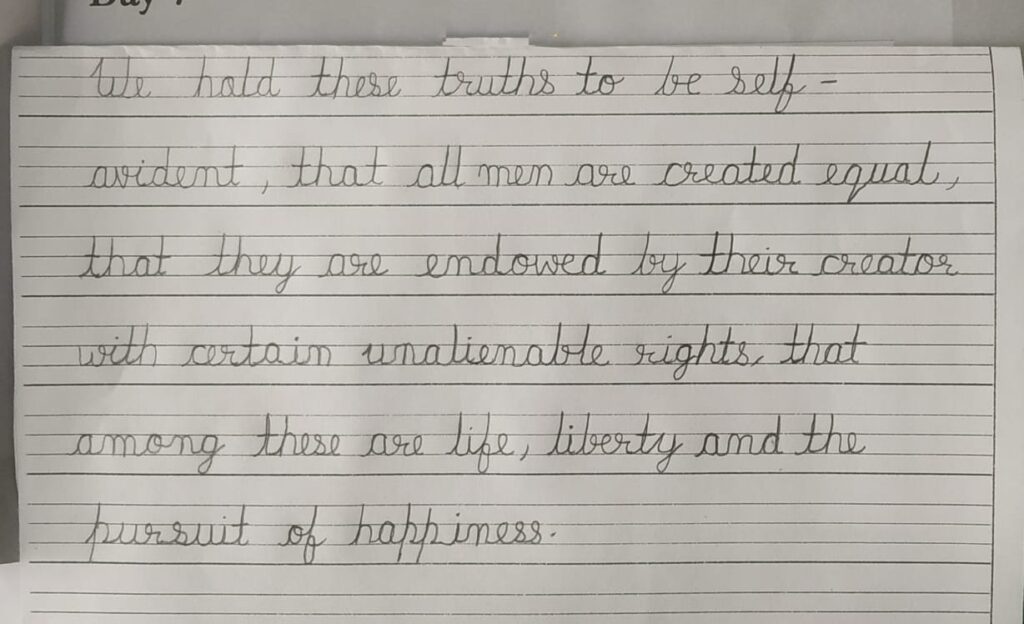 We hold these truths to be self-
evident, that all men are created equal,
that they are endowed by their creator
with certain unalienable rights, that
among these are life, liberty and the
pursuit of happiness.